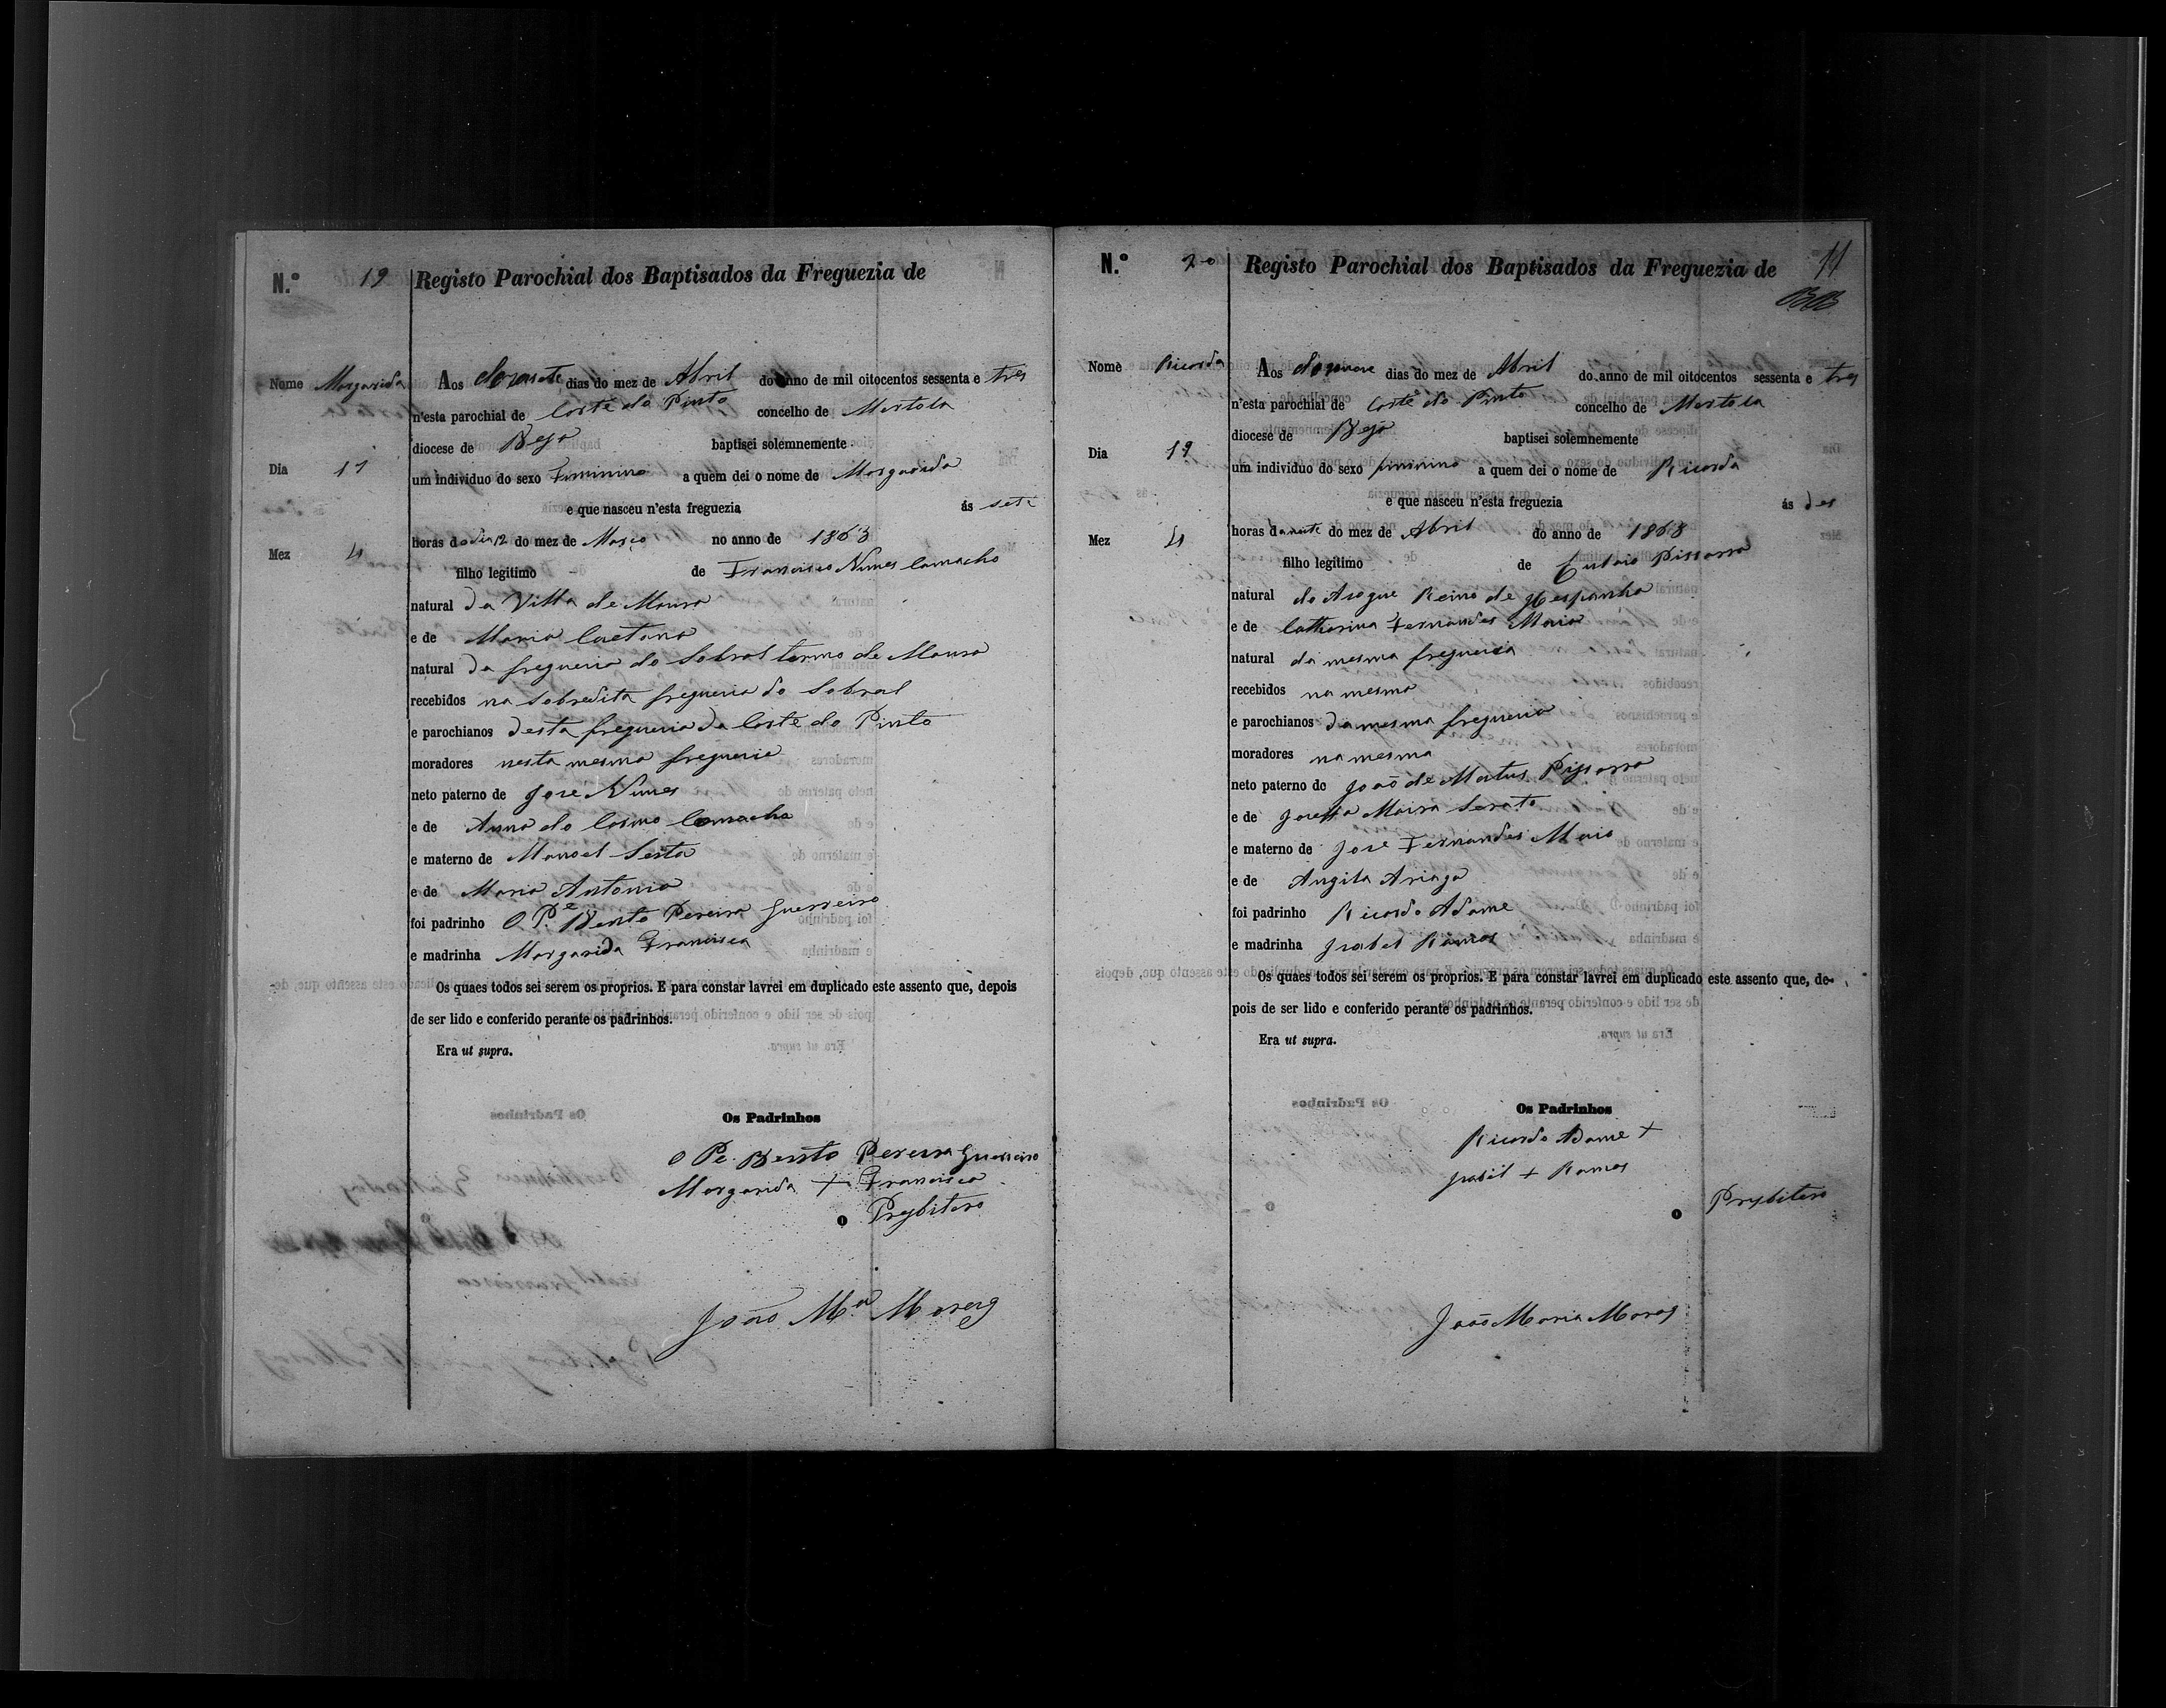 N.º 19 Registo Parochial dos Baptisados da Freguezia de
Nome Margarida
Dia 17
Mez 4
Aos dezasete dias do mez de Abril do anno de mil oitocentos sessenta e tres
n'esta parochial de Corte do Pinto concelho de Mertola
diocese de Beja baptisei solemnemente
um individuo do sexo Feminino a quem dei o nome de Margarida
e que nasceu n'esta freguezia ás sete
horas do dia 12 do mez de Março no anno de 1863
filho legitimo de Francisco Nunes Camacho
natural da Villa de Moura
e de Maria Caetana
natural da freguezia do Sobral termo de Moura
recebidos na sobredita freguezia do Sobral
e parochianos desta freguezia da Corte do Pinto
moradores nesta mesma freguezia
neto paterno de José Nunes
e de Anna do Carmo Camacha
e materno de Manoel Serta
e de Maria Antonia
foi padrinho O P.e Bento Pereira Guerreiro
e madrinha Margarida Francisca
Os quaes todos sei serem os proprios. E para constar lavrei em duplicado este assento que, depois
de ser lido e conferido perante os padrinhos.
Era ut supra.
Os Padrinhos
O Pe. Bento Pereira Guerreiro
Margarida + Francisca
o Prybitero
João M.a Morag
N.º 20 Registo Parochial dos Baptisados da Freguezia de 11
Nome Ricarda
Dia 19
Mez 4
Aos dezanove dias do mez de Abril do anno de mil oitocentos sessenta e tres
n'esta parochial de Corte do Pinto concelho de Mertola
diocese de Beja baptisei solemnemente
um individuo do sexo femenino a quem dei o nome de Ricarda
e que nasceu n'esta freguezia ás des
horas da noute do mez de Abril do anno de 1863
filho legitimo de Pissarra
natural do Aroque Reino de Hespanha
e de Catharina Fernandes Maia
natural da mesma freguezia
recebidos na mesma
e parochianos da mesma freguezia
moradores na mesma
neto paterno de João de Matus Pissarra
e de Josefa Maira Serato
e materno de José Fernandes Maio
e de Angila Ariaga
foi padrinho Ricardo Adame
e madrinha Izabel Ramos
Os quaes todos sei serem os proprios. E para constar lavrei em duplicado este assento que, de-
pois de ser lido e conferido perante os padrinhos.
Era ut supra.
Os Padrinhos
Ricardo Adame +
Izabel + Ramos
o Prybitero
João Maria Morag